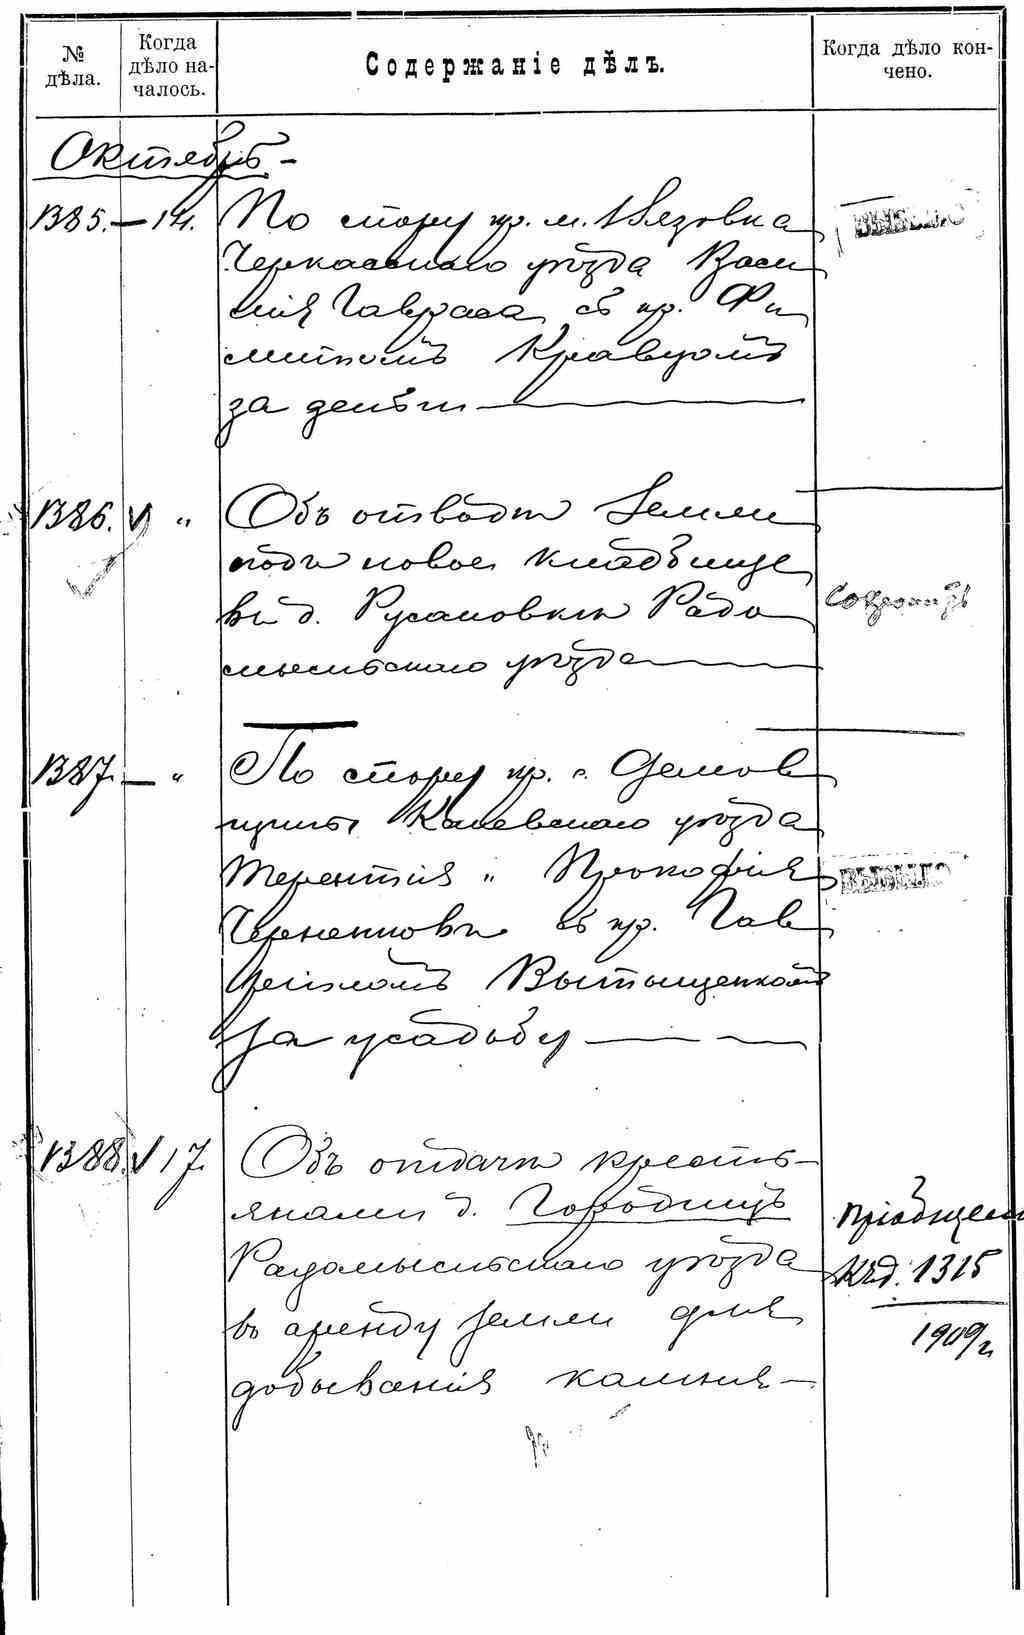 № дѣла.
Когда дѣло началось.
Содержаніе дѣлъ.
Когда дѣло кончено.
Октябрь -
1385. — 14.
По спору кр. м. Вязовка
Черкасскаго уѣзда Васи
лія Гавраса съ кр. Фи
липпомъ Кравцомъ
за деньги
ВЫБЫЛО
1386. V "
Объ отводѣ земли
подъ новое кладбище
въ д. Русановкѣ Радо
мысльскаго уѣзда
Сохранить
1387. — "
По спору кр. с. Демов
щины Каневскаго уѣзда
Терентія и Прокофія
Черненковъ съ кр. Гав
ріиломъ
за усадьбу
ВЫБЫЛО
1388. V 17.
Объ отдачѣ кресть-
янами д. Городище
Радомысльскаго уѣзда
въ аренду земли для
добыванія камня-
Пріобщено
къ д. 1315
1909 г.